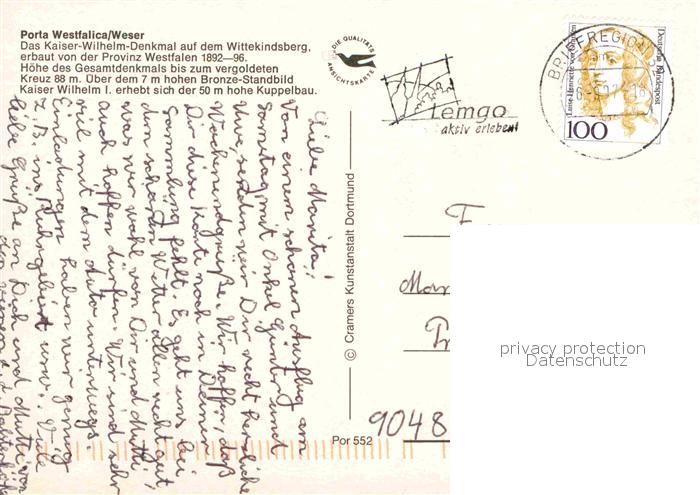 Porta Westfalica/Weser
Das Kaiser-Wilhelm-Denkmal auf dem Wittekindsberg,
erbaut von der Provinz Westfalen 1892—96.
Höhe des Gesamtdenkmals bis zum vergoldeten
Kreuz 88 m. Über dem 7 m hohen Bronze-Standbild
Kaiser Wilhelm I. erhebt sich der 50 m hohe Kuppelbau.
DIE QUALITÄTS
ANSICHTSKARTE
Lemgo
aktiv erleben!
BRIEFREGION
Luise Henriette von Oranien
Deutsche Bundespost
100
Liebe Marita!
Von einem schönen Ausflug am
Samstag mit Onkel Günter und
Uwe, senden wir Dir recht herzliche
Wochenendgrüße. Wir hoffen, daß
Dir diese Karte noch in Deiner
Sammlung fehlt. Es geht uns bei
dem schönen Wetter allen recht gut
was wir wohl von Dir und Mutti
auch hoffen dürfen. Wir sind sehr
viel mit dem Auto unterwegs.
Einladungen haben wir genug
z.B. ins Ruhrgebiet usw. Viele
liebe Grüße an Dich und Mutti von
© Cramers Kunstanstalt Dortmund
F
Mar
9048
Por 552
privacy protection
Datenschutz